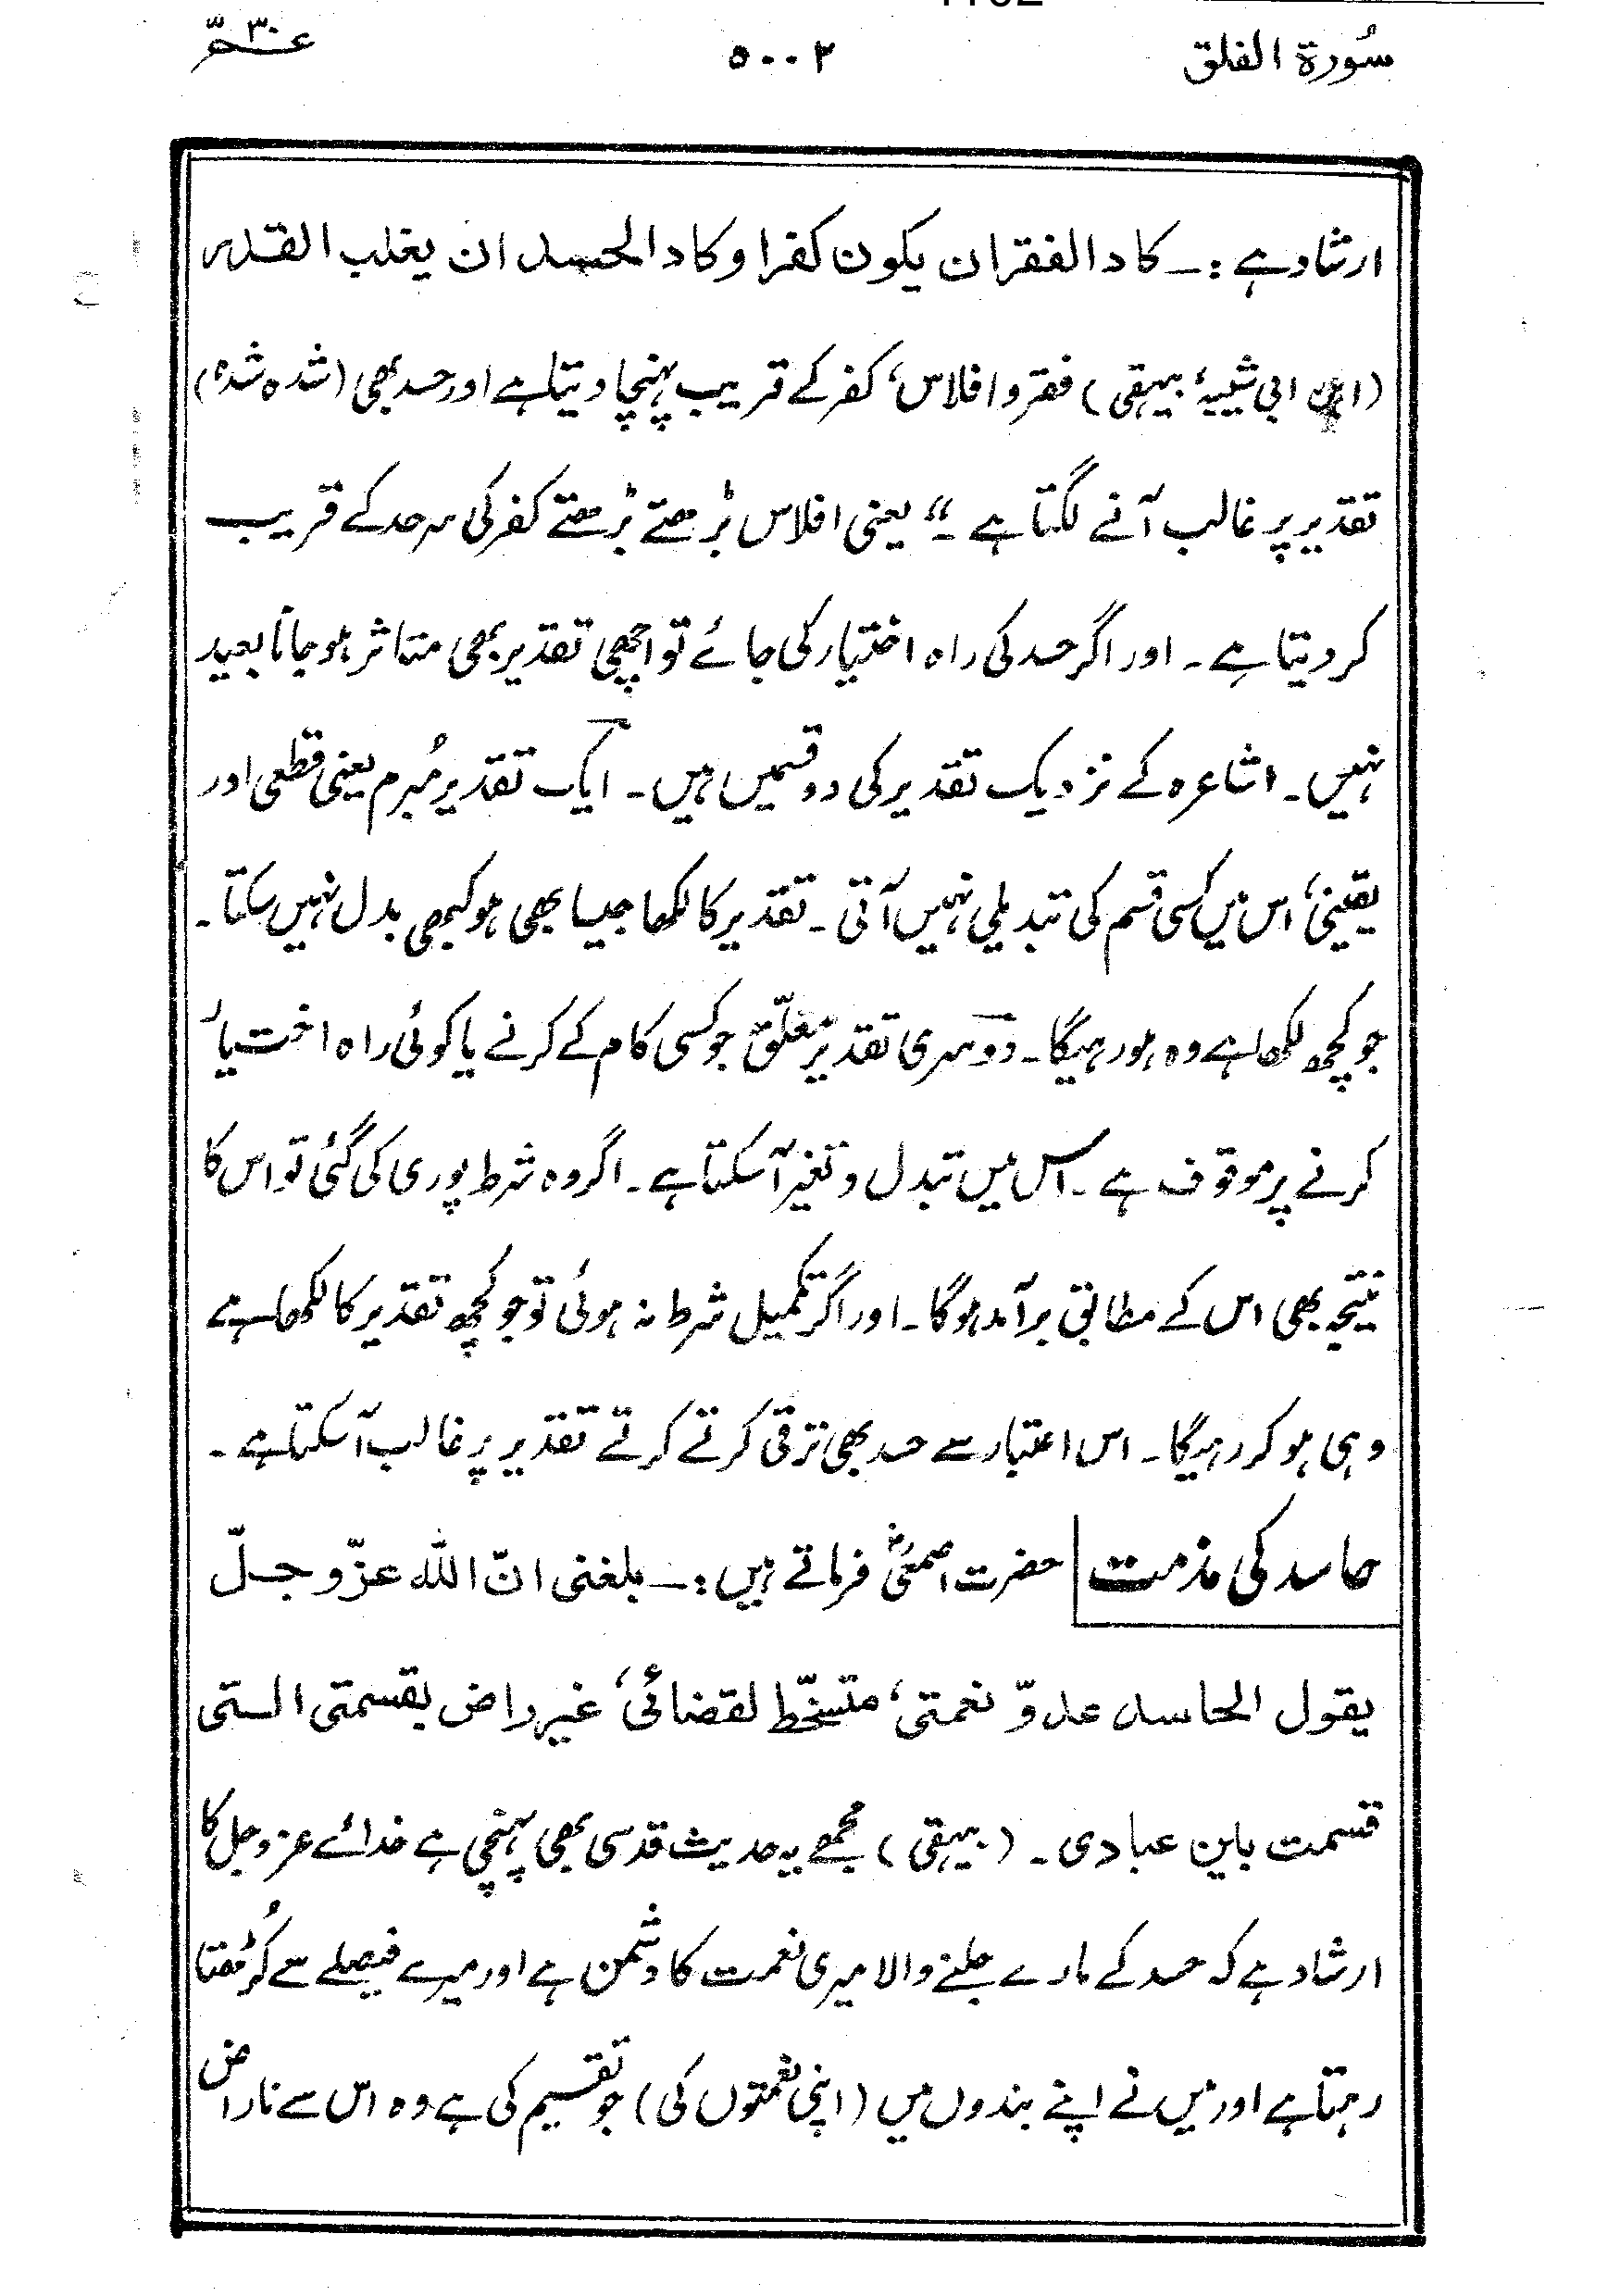 سُورة الفلق
۵۰۰۲
عـمّ ۳۰
ارشاد ہے :۔ كاد الفقر ان يكون كفرا وكاد الحسد ان يغلب القدر
(ابن ابی شیبہ، بیہقی) فقر و افلاس، کفر کے قریب پہنچا دیتا ہے اور حسد بھی (شدہ شدہ)
تقدیر پر غالب آنے لگتا ہے ۔“ یعنی افلاس بڑھتے بڑھتے کفر کی سرحد کے قریب
کر دیتا ہے ۔ اور اگر حسد کی راہ اختیار کی جائے تو اچھی تقدیر بھی متاثر ہو جانا بعید
نہیں ۔ اشاعرہ کے نزدیک تقدیر کی دو قسمیں ہیں ۔ ایک تقدیر مُبرم یعنی قطعی اور
یقینی، اس میں کسی قسم کی تبدیلی نہیں آتی ۔ تقدیر کا لکھا جیسا بھی ہو کبھی بدل نہیں سکتا ۔
جو کچھ لکھا ہے وہ ہو رہیگا ۔ دوسری تقدیر معلّق جو کسی کام کے کرنے یا کوئی راہ اختیار
کرنے پر موقوف ہے ۔ اس میں تبدل و تغیر آسکتا ہے ۔ اگر وہ شرط پوری کی گئی تو اس کا
نتیجہ بھی اس کے مطابق برآمد ہوگا ۔ اور اگر تکمیل شرط نہ ہوئی تو جو کچھ تقدیر کا لکھا ہے
وہی ہو کر رہیگا ۔ اس اعتبار سے حسد بھی ترقی کرتے کرتے تقدیر پر غالب آسکتا ہے ۔
حاسد کی مذمت حضرت اصمعیؒ فرماتے ہیں :۔ بلغنى انّ الله عزّ وجلّ
يقول الحاسد عدوّ نعمتى، متسخّط لقضائى، غير راض بقسمتى التى
قسمت باين عبادى ۔ (بیہقی) مجھے یہ حدیث قدسی بھی پہنچی ہے خدائے عزوجل کا
ارشاد ہے کہ حسد کے مارے جلنے والا میری نعمت کا دشمن ہے اور میرے فیصلے سے کُڑھتا
رہتا ہے اور میں نے اپنے بندوں میں (اپنی نعمتوں کی) جو تقسیم کی ہے وہ اس سے ناراض